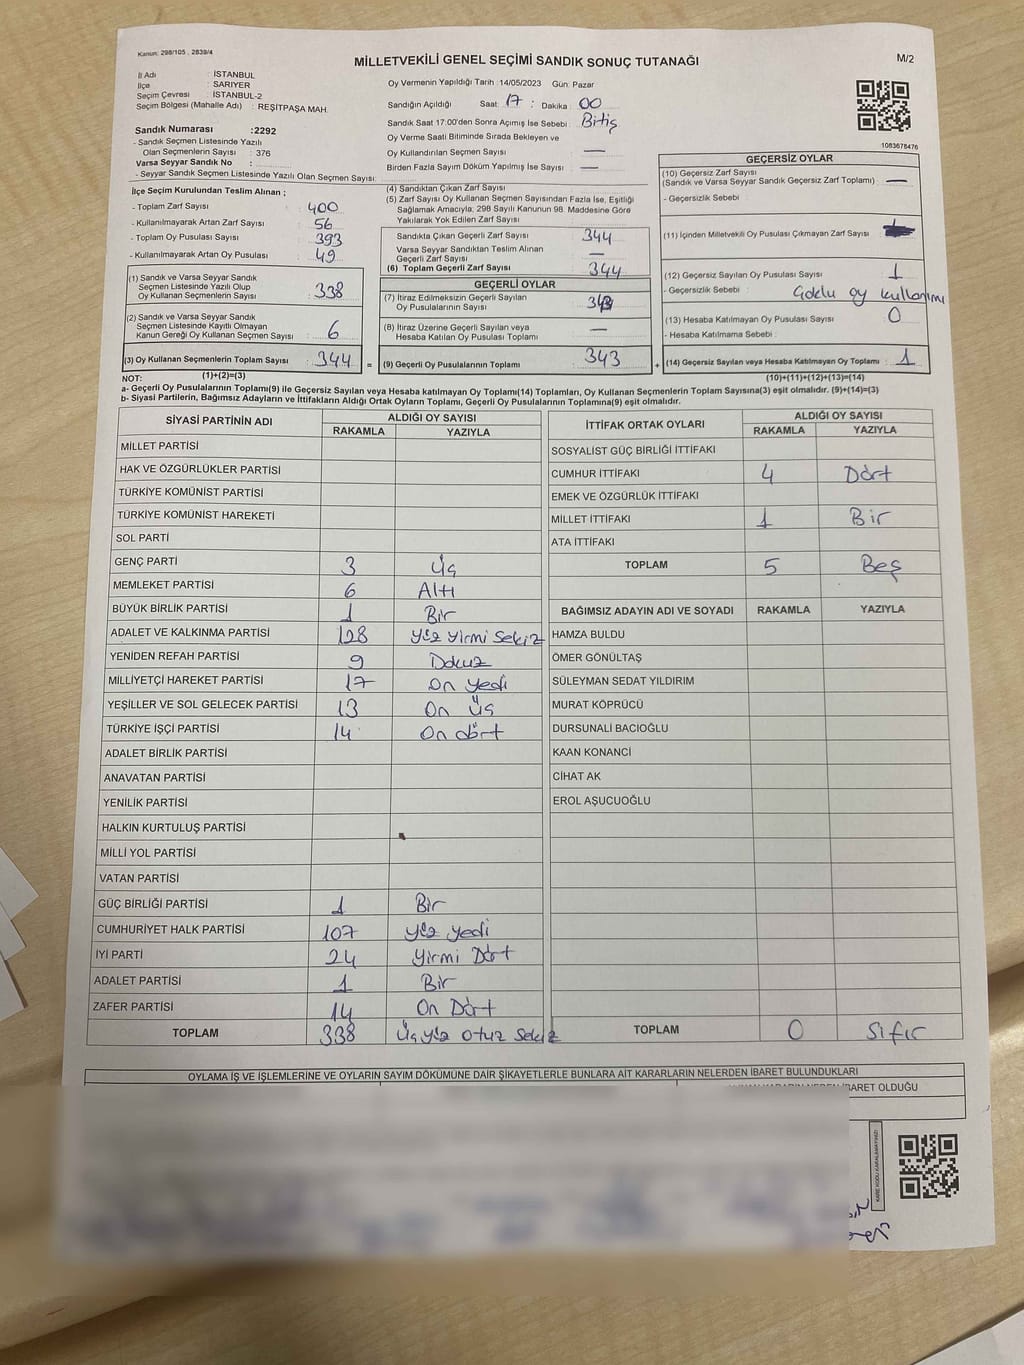 Kanun: 298/105 , 2839/4
MİLLETVEKİLİ GENEL SEÇİMİ SANDIK SONUÇ TUTANAĞI
M/2
İl Adı : İSTANBUL
İlçe : SARIYER
Seçim Çevresi : İSTANBUL-2
Seçim Bölgesi (Mahalle Adı) : REŞİTPAŞA MAH.
Sandık Numarası :2292
- Sandık Seçmen Listesinde Yazılı
Olan Seçmenlerin Sayısı : 376
Varsa Seyyar Sandık No :
- Seyyar Sandık Seçmen Listesinde Yazılı Olan Seçmen Sayısı:
Oy Vermenin Yapıldığı Tarih :14/05/2023 Gün: Pazar
Sandığın Açıldığı Saat: 17 : Dakika: 00
Sandık Saat 17:00'den Sonra Açımış İse Sebebi : Bitiş
Oy Verme Saati Bitiminde Sırada Bekleyen ve
Oy Kullandırılan Seçmen Sayısı : —
Birden Fazla Sayım Döküm Yapılmış İse Sayısı : —
1083678476
İlçe Seçim Kurulundan Teslim Alınan ;
- Toplam Zarf Sayısı : 400
- Kullanılmayarak Artan Zarf Sayısı : 56
- Toplam Oy Pusulası Sayısı : 393
- Kullanılmayarak Artan Oy Pusulası : 49
(1) Sandık ve Varsa Seyyar Sandık
Seçmen Listesinde Yazılı Olup
Oy Kullanan Seçmenlerin Sayısı : 338
(2) Sandık ve Varsa Seyyar Sandık
Seçmen Listesinde Kayıtlı Olmayan
Kanun Gereği Oy Kullanan Seçmen Sayısı : 6
(3) Oy Kullanan Seçmenlerin Toplam Sayısı : 344 =
(1)+(2)=(3)
(4) Sandıktan Çıkan Zarf Sayısı
(5) Zarf Sayısı Oy Kullanan Seçmen Sayısından Fazla İse, Eşitliği
Sağlamak Amacıyla; 298 Sayılı Kanunun 98. Maddesine Göre
Yakılarak Yok Edilen Zarf Sayısı :
Sandıkta Çıkan Geçerli Zarf Sayısı 344
Varsa Seyyar Sandıktan Teslim Alınan
Geçerli Zarf Sayısı : —
(6) Toplam Geçerli Zarf Sayısı : 344
GEÇERLİ OYLAR
(7) İtiraz Edilmeksizin Geçerli Sayılan
Oy Pusulalarının Sayısı : 343
(8) İtiraz Üzerine Geçerli Sayılan veya
Hesaba Katılan Oy Pusulası Toplamı : —
(9) Geçerli Oy Pusulalarının Toplamı : 343 +
GEÇERSİZ OYLAR
(10) Geçersiz Zarf Sayısı
(Sandık ve Varsa Seyyar Sandık Geçersiz Zarf Toplamı) : —
- Geçersizlik Sebebi :
(11) İçinden Milletvekili Oy Pusulası Çıkmayan Zarf Sayısı :
(12) Geçersiz Sayılan Oy Pusulası Sayısı : 1
- Geçersizlik Sebebi : Çoklu oy kullanımı
(13) Hesaba Katılmayan Oy Pusulası Sayısı : 0
- Hesaba Katılmama Sebebi :
(14) Geçersiz Sayılan veya Hesaba Katılmayan Oy Toplamı : 1
(10)+(11)+(12)+(13)=(14)
NOT:
a- Geçerli Oy Pusulalarının Toplamı(9) ile Geçersiz Sayılan veya Hesaba katılmayan Oy Toplamı(14) Toplamları, Oy Kullanan Seçmenlerin Toplam Sayısına(3) eşit olmalıdır. (9)+(14)=(3)
b- Siyasi Partilerin, Bağımsız Adayların ve İttifakların Aldığı Ortak Oyların Toplamı, Geçerli Oy Pusulalarının Toplamına(9) eşit olmalıdır.
SİYASİ PARTİNİN ADI ALDIĞI OY SAYISI
RAKAMLA YAZIYLA
MİLLET PARTİSİ
HAK VE ÖZGÜRLÜKLER PARTİSİ
TÜRKİYE KOMÜNİST PARTİSİ
TÜRKİYE KOMÜNİST HAREKETİ
SOL PARTİ
GENÇ PARTİ 3 Üç
MEMLEKET PARTİSİ 6 Altı
BÜYÜK BİRLİK PARTİSİ 1 Bir
ADALET VE KALKINMA PARTİSİ 128 Yüz yirmi sekiz
YENİDEN REFAH PARTİSİ 9 Dokuz
MİLLİYETÇİ HAREKET PARTİSİ 17 On yedi
YEŞİLLER VE SOL GELECEK PARTİSİ 13 On üç
TÜRKİYE İŞÇİ PARTİSİ 14 On dört
ADALET BİRLİK PARTİSİ
ANAVATAN PARTİSİ
YENİLİK PARTİSİ
HALKIN KURTULUŞ PARTİSİ
MİLLİ YOL PARTİSİ
VATAN PARTİSİ
GÜÇ BİRLİĞİ PARTİSİ 1 Bir
CUMHURİYET HALK PARTİSİ 107 yüz yedi
İYİ PARTİ 24 Yirmi Dört
ADALET PARTİSİ 1 Bir
ZAFER PARTİSİ 14 On Dört
TOPLAM 338 Üçyüz otuz sekiz
İTTİFAK ORTAK OYLARI ALDIĞI OY SAYISI
RAKAMLA YAZIYLA
SOSYALİST GÜÇ BİRLİĞİ İTTİFAKI
CUMHUR İTTİFAKI 4 Dört
EMEK VE ÖZGÜRLÜK İTTİFAKI
MİLLET İTTİFAKI 1 Bir
ATA İTTİFAKI
TOPLAM 5 Beş
BAĞIMSIZ ADAYIN ADI VE SOYADI RAKAMLA YAZIYLA
HAMZA BULDU
ÖMER GÖNÜLTAŞ
SÜLEYMAN SEDAT YILDIRIM
MURAT KÖPRÜCÜ
DURSUNALİ BACIOĞLU
KAAN KONANCİ
CİHAT AK
EROL AŞUCUOĞLU
TOPLAM 0 Sıfır
OYLAMA İŞ VE İŞLEMLERİNE VE OYLARIN SAYIM DÖKÜMÜNE DAİR ŞİKAYETLERLE BUNLARA AİT KARARLARIN NELERDEN İBARET BULUNDUKLARI
İBARET OLDUĞU